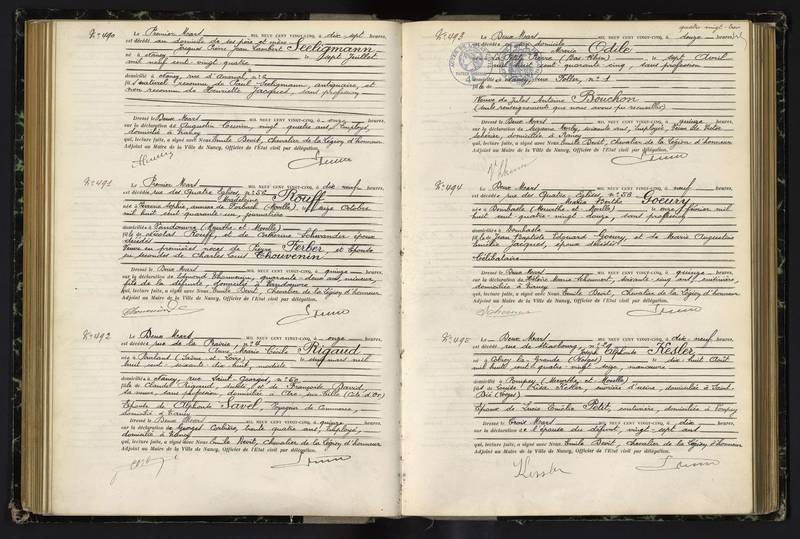 N° 490 Le Premier Mars MIL NEUF CENT VINGT-CINQ, à dix sept heures,
est décédé au domicile de ses père et mère
Jacques Pierre Jean Lambert Seeligmann
né à Nancy le sept Juillet
mil neuf cent vingt quatre
domicilié à Nancy, rue
fils naturel reconnu de Paul Seeligmann, antiquaire, et
non reconnu de Henriette Jacques, sans profession
Dressé le Deux Mars MIL NEUF CENT VINGT-CINQ, à onze heures,
sur la déclaration de Augustin vingt quatre ans, employé,
domicilié à Nancy
qui, lecture faite, a signé avec Nous Emile Boit, Chevalier de la Légion d'honneur
Adjoint au Maire de la Ville de Nancy, Officier de l'Etat civil par délégation.
N° 491 Le Premier Mars MIL NEUF CENT VINGT-CINQ, à dix neuf heures,
est décédée rue des Quatre Eglises, n° 56
Magdeleine Rouff
née à le seize Octobre
mil huit cent quarante un, journalière
domiciliée à Vandoeuvre (Meurthe et Moselle)
fille de Nicolas Rouff, et de Catherine Schwander époux
décédés
Veuve en premières noces de Pierre Ferber, et Epouse
en secondes de Charles Louis Thouvenin
Dressé le Deux Mars MIL NEUF CENT VINGT-CINQ, à quinze heures,
sur la déclaration de Edmond Thouvenin, quarante deux ans, mineur,
fils de la défunte, domicilié à Vandoeuvre
qui, lecture faite, a signé avec Nous Emile Boit, Chevalier de la Légion d'honneur
Adjoint au Maire de la Ville de Nancy, Officier de l'Etat civil par délégation.
N° 492 Le Deux Mars MIL NEUF CENT VINGT-CINQ, à onze heures,
est décédée rue de la Prairie, n° 4
Anne Marie Cécile Rigaud
née à (Saône et Loire) le mars mil
huit cent soixante dix huit, modiste
domiciliée à Nancy, rue Saint Georges, n° 50
fille de Claude Rigaud, décédé, et de Françoise David
sa veuve, sans profession, domiciliée à Arc sur Tille (Côte d'Or)
Epouse de Alphonse Savel, Voyageur de Commerce,
domicilié à Nancy
Dressé le Deux Mars MIL NEUF CENT VINGT-CINQ, à quinze heures,
sur la déclaration de Georges trente quatre ans, employé,
domicilié à Nancy
qui, lecture faite, a signé avec Nous Emile Boit, Chevalier de la Légion d'honneur
Adjoint au Maire de la Ville de Nancy, Officier de l'Etat civil par délégation.
quatre vingt trois
N° 493 Le Deux Mars MIL NEUF CENT VINGT-CINQ, à douze heures,
est décédée en son domicile
Marie Odile
née à La Petite Pierre (Bas Rhin) le sept Avril
mil huit cent quarante cinq, sans profession
domiciliée à Nancy, rue Foller, n° 1
fille de
Veuve de Jules Antoine Bouchon
(seuls renseignements que nous ayons pu recueillir)
Dressé le Deux Mars MIL NEUF CENT VINGT-CINQ, à quinze heures,
sur la déclaration de Suzanne soixante ans, employée, Veuve de Victor
domiciliée à Nancy
qui, lecture faite, a signé avec Nous Emile Boit, Chevalier de la Légion d'honneur
Adjoint au Maire de la Ville de Nancy, Officier de l'Etat civil par délégation.
N° 494 Le Deux Mars MIL NEUF CENT VINGT-CINQ, à neuf heures,
est décédée rue des Quatre Eglises, n° 58
Marie Berthe Goeury
née à Dombasle (Meurthe et Moselle) le onze février mil
huit cent quatre vingt douze, sans profession
domiciliée à Dombasle
fille de Jean Baptiste Edouard Goeury, et de Marie Augustine
Emélie Jacques, époux décédés
Célibataire
Dressé le Deux Mars MIL NEUF CENT VINGT-CINQ, à quinze heures,
sur la déclaration de Marie soixante cinq ans, couturière,
domiciliée à Nancy
qui, lecture faite, a signé avec Nous Emile Boit, Chevalier de la Légion d'honneur
Adjoint au Maire de la Ville de Nancy, Officier de l'Etat civil par délégation.
N° 495 Le Deux Mars MIL NEUF CENT VINGT-CINQ, à dix neuf heures,
est décédé rue de Strasbourg, n°
Joseph Alphonse Kesler
né à Colroy la Grande (Vosges) le dix huit Août
mil huit cent quatre vingt seize, manoeuvre
domicilié à Pompey (Meurthe et Moselle)
fils de Louise Elisa Kesler, ouvrière d'usine, domiciliée à Saint
Dié (Vosges)
Epoux de Lucie Emélie Petit, couturière, domiciliée à Pompey
Dressé le Trois Mars MIL NEUF CENT VINGT-CINQ, à dix heures,
sur la déclaration de l'épouse du défunt, vingt sept ans
qui, lecture faite, a signé avec Nous Emile Boit, Chevalier de la Légion d'honneur
Adjoint au Maire de la Ville de Nancy, Officier de l'Etat civil par délégation.
Kessler